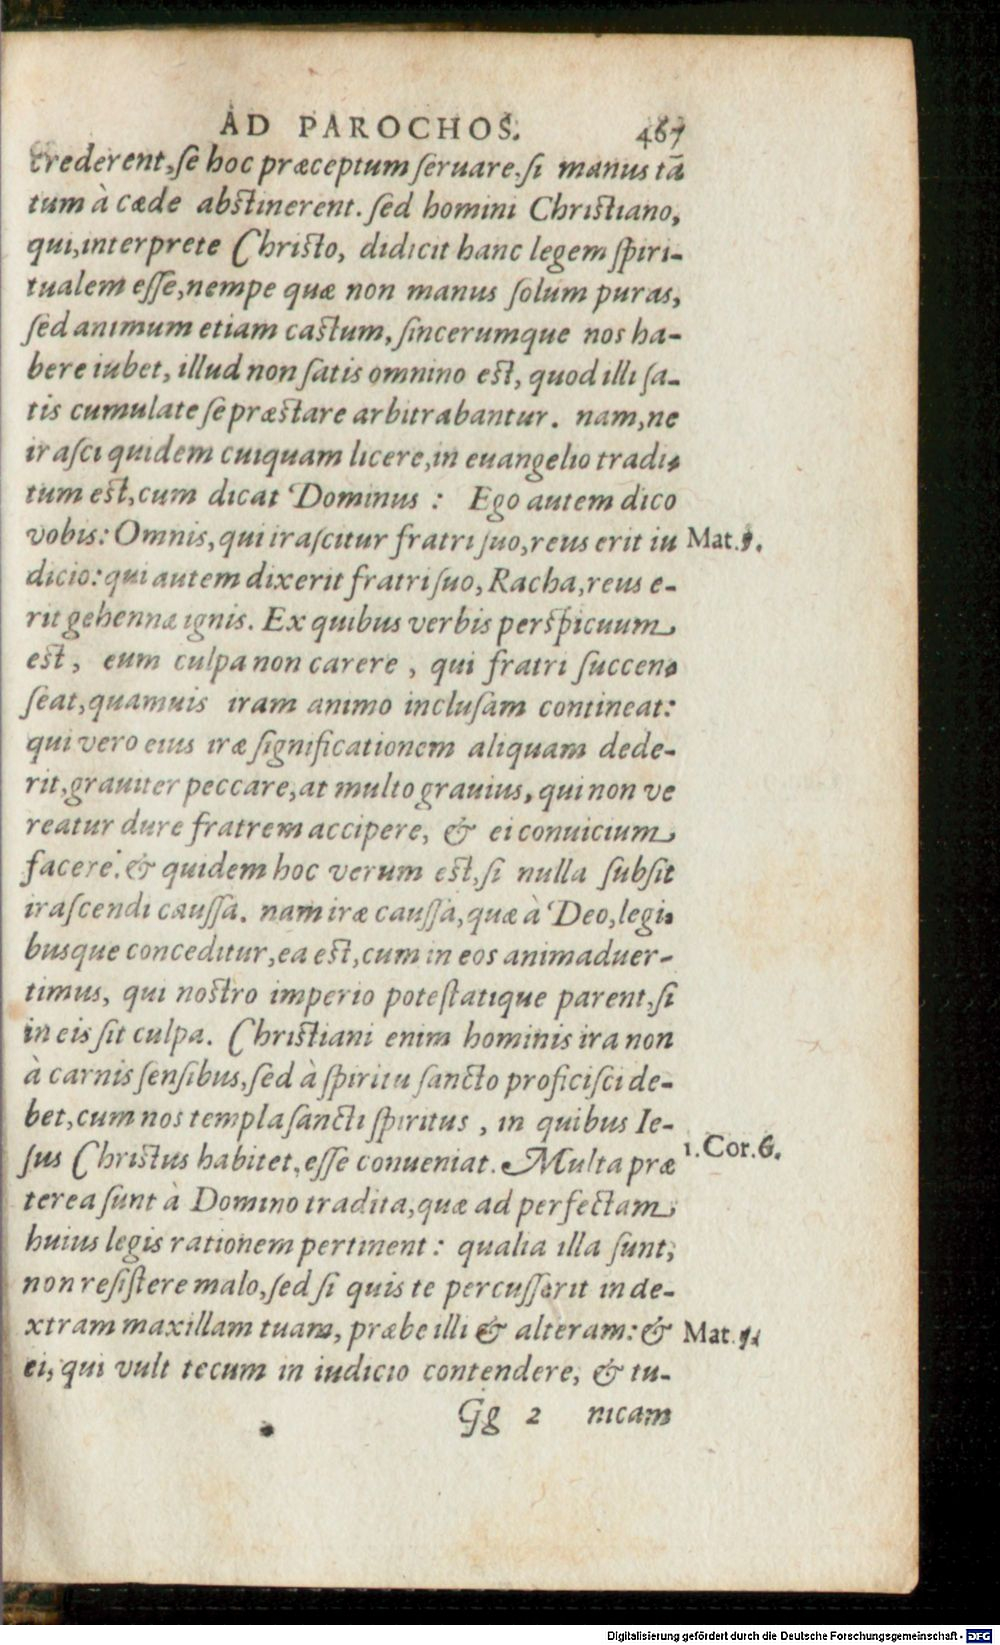 AD PAROCHOS. 467
crederent, se hoc præceptum seruare, si manus tā
tum à cæde abstinerent. sed homini Christiano,
qui, interprete Christo, didicit hanc legem spiri-
tualem esse, nempe quæ non manus solum puras,
sed animum etiam castum, sincerumque nos ha-
bere iubet, illud non satis omnino est, quod illi sa-
tis cumulate se præstare arbitrabantur. nam, ne
irasci quidem cuiquam licere, in euangelio tradi-
tum est, cum dicat Dominus: Ego autem dico
vobis: Omnis, qui irascitur fratri suo, reus erit iu Mat.5.
dicio: qui autem dixerit fratri suo, Racha, reus e-
rit gehennæ ignis. Ex quibus verbis perspicuum
est, eum culpa non carere, qui fratri succen-
seat, quamuis iram animo inclusam contineat:
qui vero eius iræ significationem aliquam dede-
rit, grauiter peccare, at multo grauius, qui non ve
reatur dure fratrem accipere, & ei conuicium
facere. & quidem hoc verum est, si nulla subsit
irascendi caussa. nam iræ caussa, quæ à Deo, legi-
busque conceditur, ea est, cum in eos animaduer-
timus, qui nostro imperio potestatique parent, si
in eis sit culpa. Christiani enim hominis ira non
à carnis sensibus, sed à spiritu sancto proficisci de-
bet, cum nos templa sancti spiritus, in quibus Ie-
sus Christus habitet, esse conueniat. Multa præ 1. Cor. 6.
terea sunt à Domino tradita, quæ ad perfectam
huius legis rationem pertinent: qualia illa sunt,
non resistere malo, sed si quis te percusserit in de-
xtram maxillam tuam, præbe illi & alteram: & Mat. 5.
ei, qui vult tecum in iudicio contendere, & tu-
Gg 2 nicam
Digitalisierung gefördert durch die Deutsche Forschungsgemeinschaft - DFG